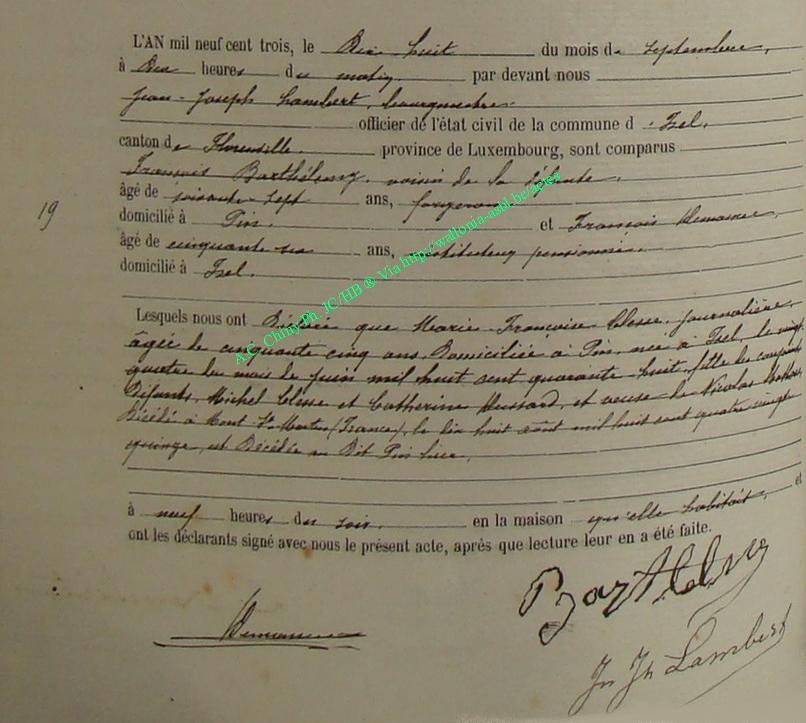 L'AN mil neuf cent trois, le Dix huit du mois de septembre,
à Dix heures du matin par devant nous
Jean-Joseph Lambert, bourgmestre
officier de l'état civil de la commune d'Izel,
canton de Florenville province de Luxembourg, sont comparus
François Barthélemy, voisin de la défunte,
âgé de soixante sept ans, forgeron
19
domicilié à Pin. et François
âgé de cinquante six ans, instituteur pensionné
domicilié à Izel.
Lesquels nous ont Déclaré que Marie Françoise Closse, journalière,
âgée de cinquante cinq ans, Domiciliée à Pin, née à Izel, le vingt
quatre du mois de juin mil huit cent quarante huit, fille des conjoints
Défunts, Michel Closse et Catherine Hussard, et veuve de Nicolas
Décédé à Mont St Martin (France), le dix huit août mil huit cent quatre vingt
quinze, est Décédée au Dit Pin hier,
à neuf heures du soir, en la maison qu'elle habitait, et
ont les déclarants signé avec nous le présent acte, après que lecture leur en a été faite.
Barthélemy
Jn Jh Lambert
A.C. Chiny Ph. JC/HB ® Via http://wallonia-asbl.be/actes